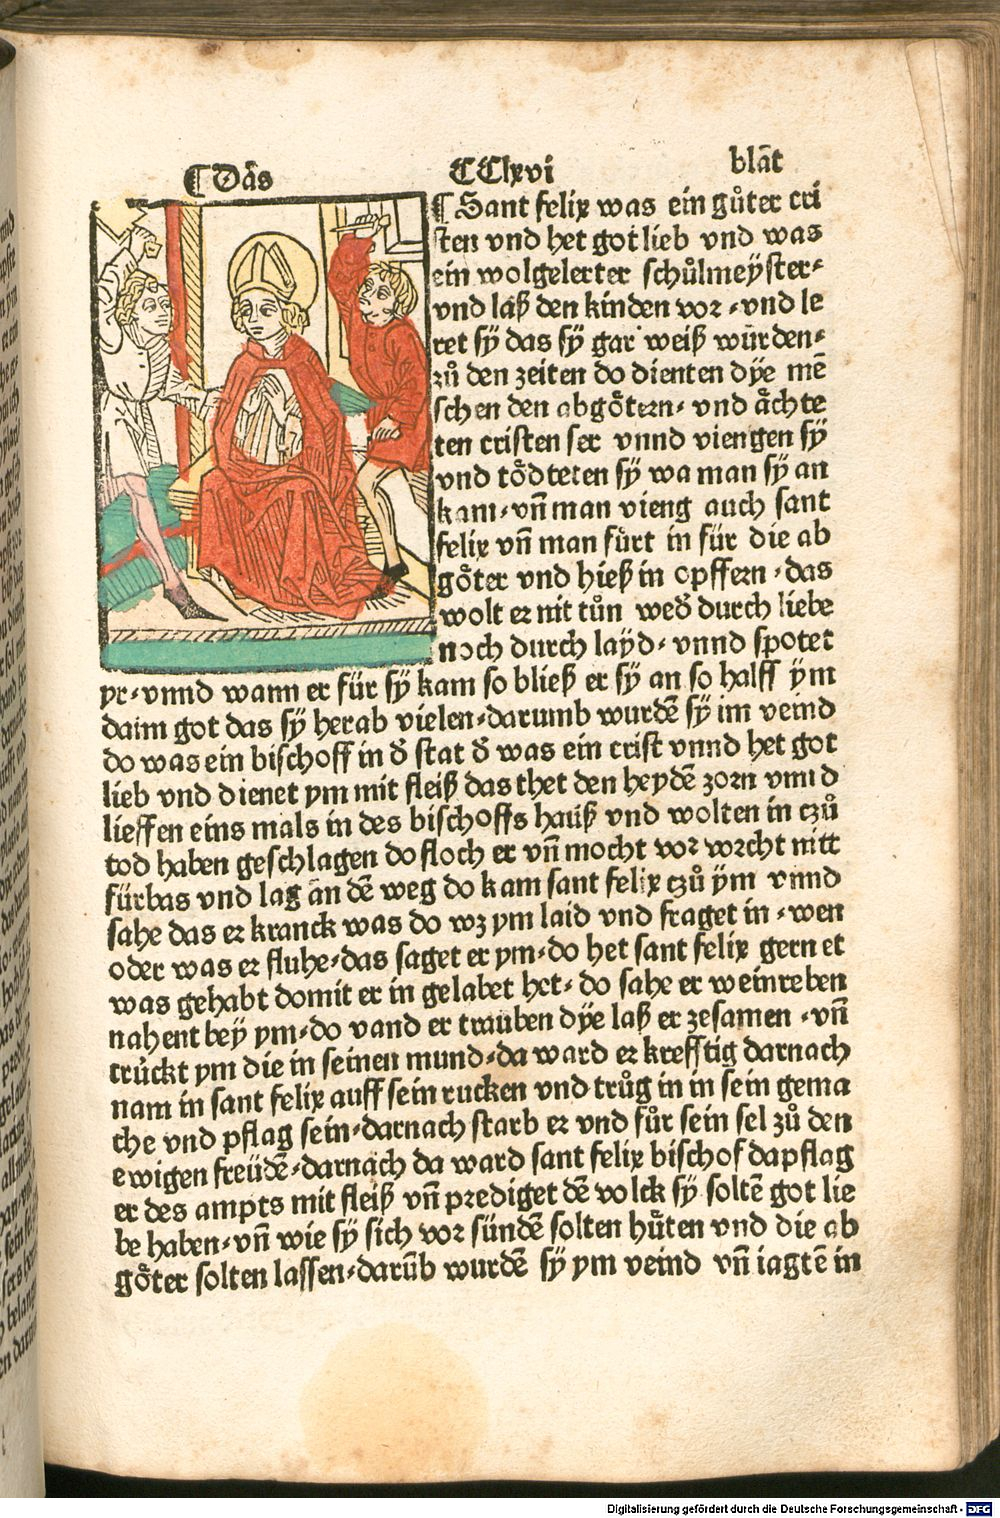 ¶ Dās CClxvi blāt
¶ Sant felix was ein gůter cri
sten vnd het got lieb vnd was
ein wolgelerter schůlmeÿster⸗
vnd laß den kinden vor ⸗ vnd le
ret sÿ das sÿ gar weiß würden⸗
zů den zeiten do dienten dÿe mē
schen den abgötern⸗ vnd ächte
ten cristen ser vnnd viengen sÿ
vnd tödteten sÿ wa man sÿ an
kam⸗ vn̄ man vieng auch sant
felix vn̄ man fůrt in für die ab
göter vnd hieß in opffern ⸗ das
wolt er nit tůn wed̄ durch liebe
noch durch laÿd⸗ vnnd spotet
yr⸗ vnnd wann er für sÿ kam so bließ er sÿ an so halff ÿm
daim got das sÿ herab vielen⸗ darumb wurdē sÿ im veind
do was ein bischoff in d̄ stat d̄ was ein crist vnnd het got
lieb vnd dienet ym mit fleiß das thet den heydē zorn vnnd
lieffen eins mals in des bischoffs hauß vnd wolten in czů
tod haben geschlagen do floch er vn̄ mocht vor vorcht nitt
fürbas vnd lag an dē weg do kam sant felix czů ÿm vnnd
sahe das er kranck was do wz ym laid vnd fraget in ⸗ wen
oder was er fluhe⸗ das saget er ym⸗ do het sant felix gern et
was gehabt domit er in gelabet het⸗ do sahe er weinreben
nahent beÿ ym⸗ do vand er trauben dÿe laß er zesamen ⸗ vn̄
trückt ym die in seinen mund⸗ da ward er krefftig darnach
nam in sant felix auff sein rucken vnd trůg in in sein gema
che vnd pflag sein⸗ darnach starb er vnd fůr sein sel zů den
ewigen freüdē⸗ darnach da ward sant felix bischof da pflag
er des ampts mit fleiß vn̄ prediget dē volck sÿ soltē got lie
be haben⸗ vn̄ wie sÿ sich vor sündē solten hüten vnd die ab
göter solten lassen⸗ darūb wurdē sÿ ym veind vn̄ iagtē in
Digitalisierung gefördert durch die Deutsche Forschungsgemeinschaft - DFG